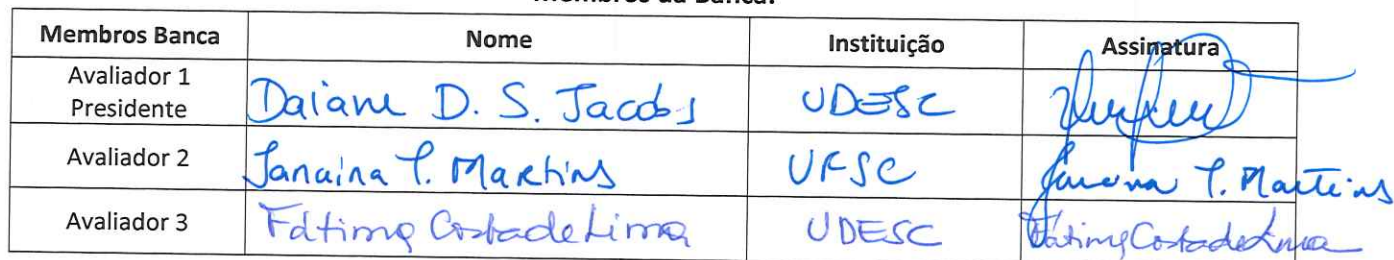 Membros da Banca:
Membros Banca Nome Instituição Assinatura
Avaliador 1
Presidente Daiane D. S. Jacobs UDESC
Avaliador 2 Janaina T. Martins UFSC Janaina T. Martins
Avaliador 3 Fátima Costa de Lima UDESC Fátima Costa de Lima